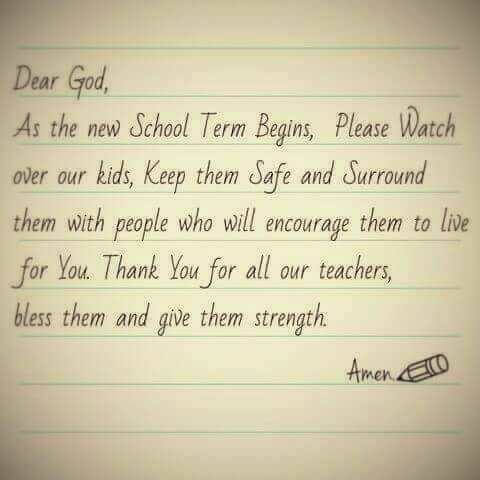 Dear God,
As the new School Term Begins, Please Watch
over our kids, Keep them Safe and Surround
them with people who will encourage them to live
for You. Thank You for all our teachers,
bless them and give them strength.
Amen